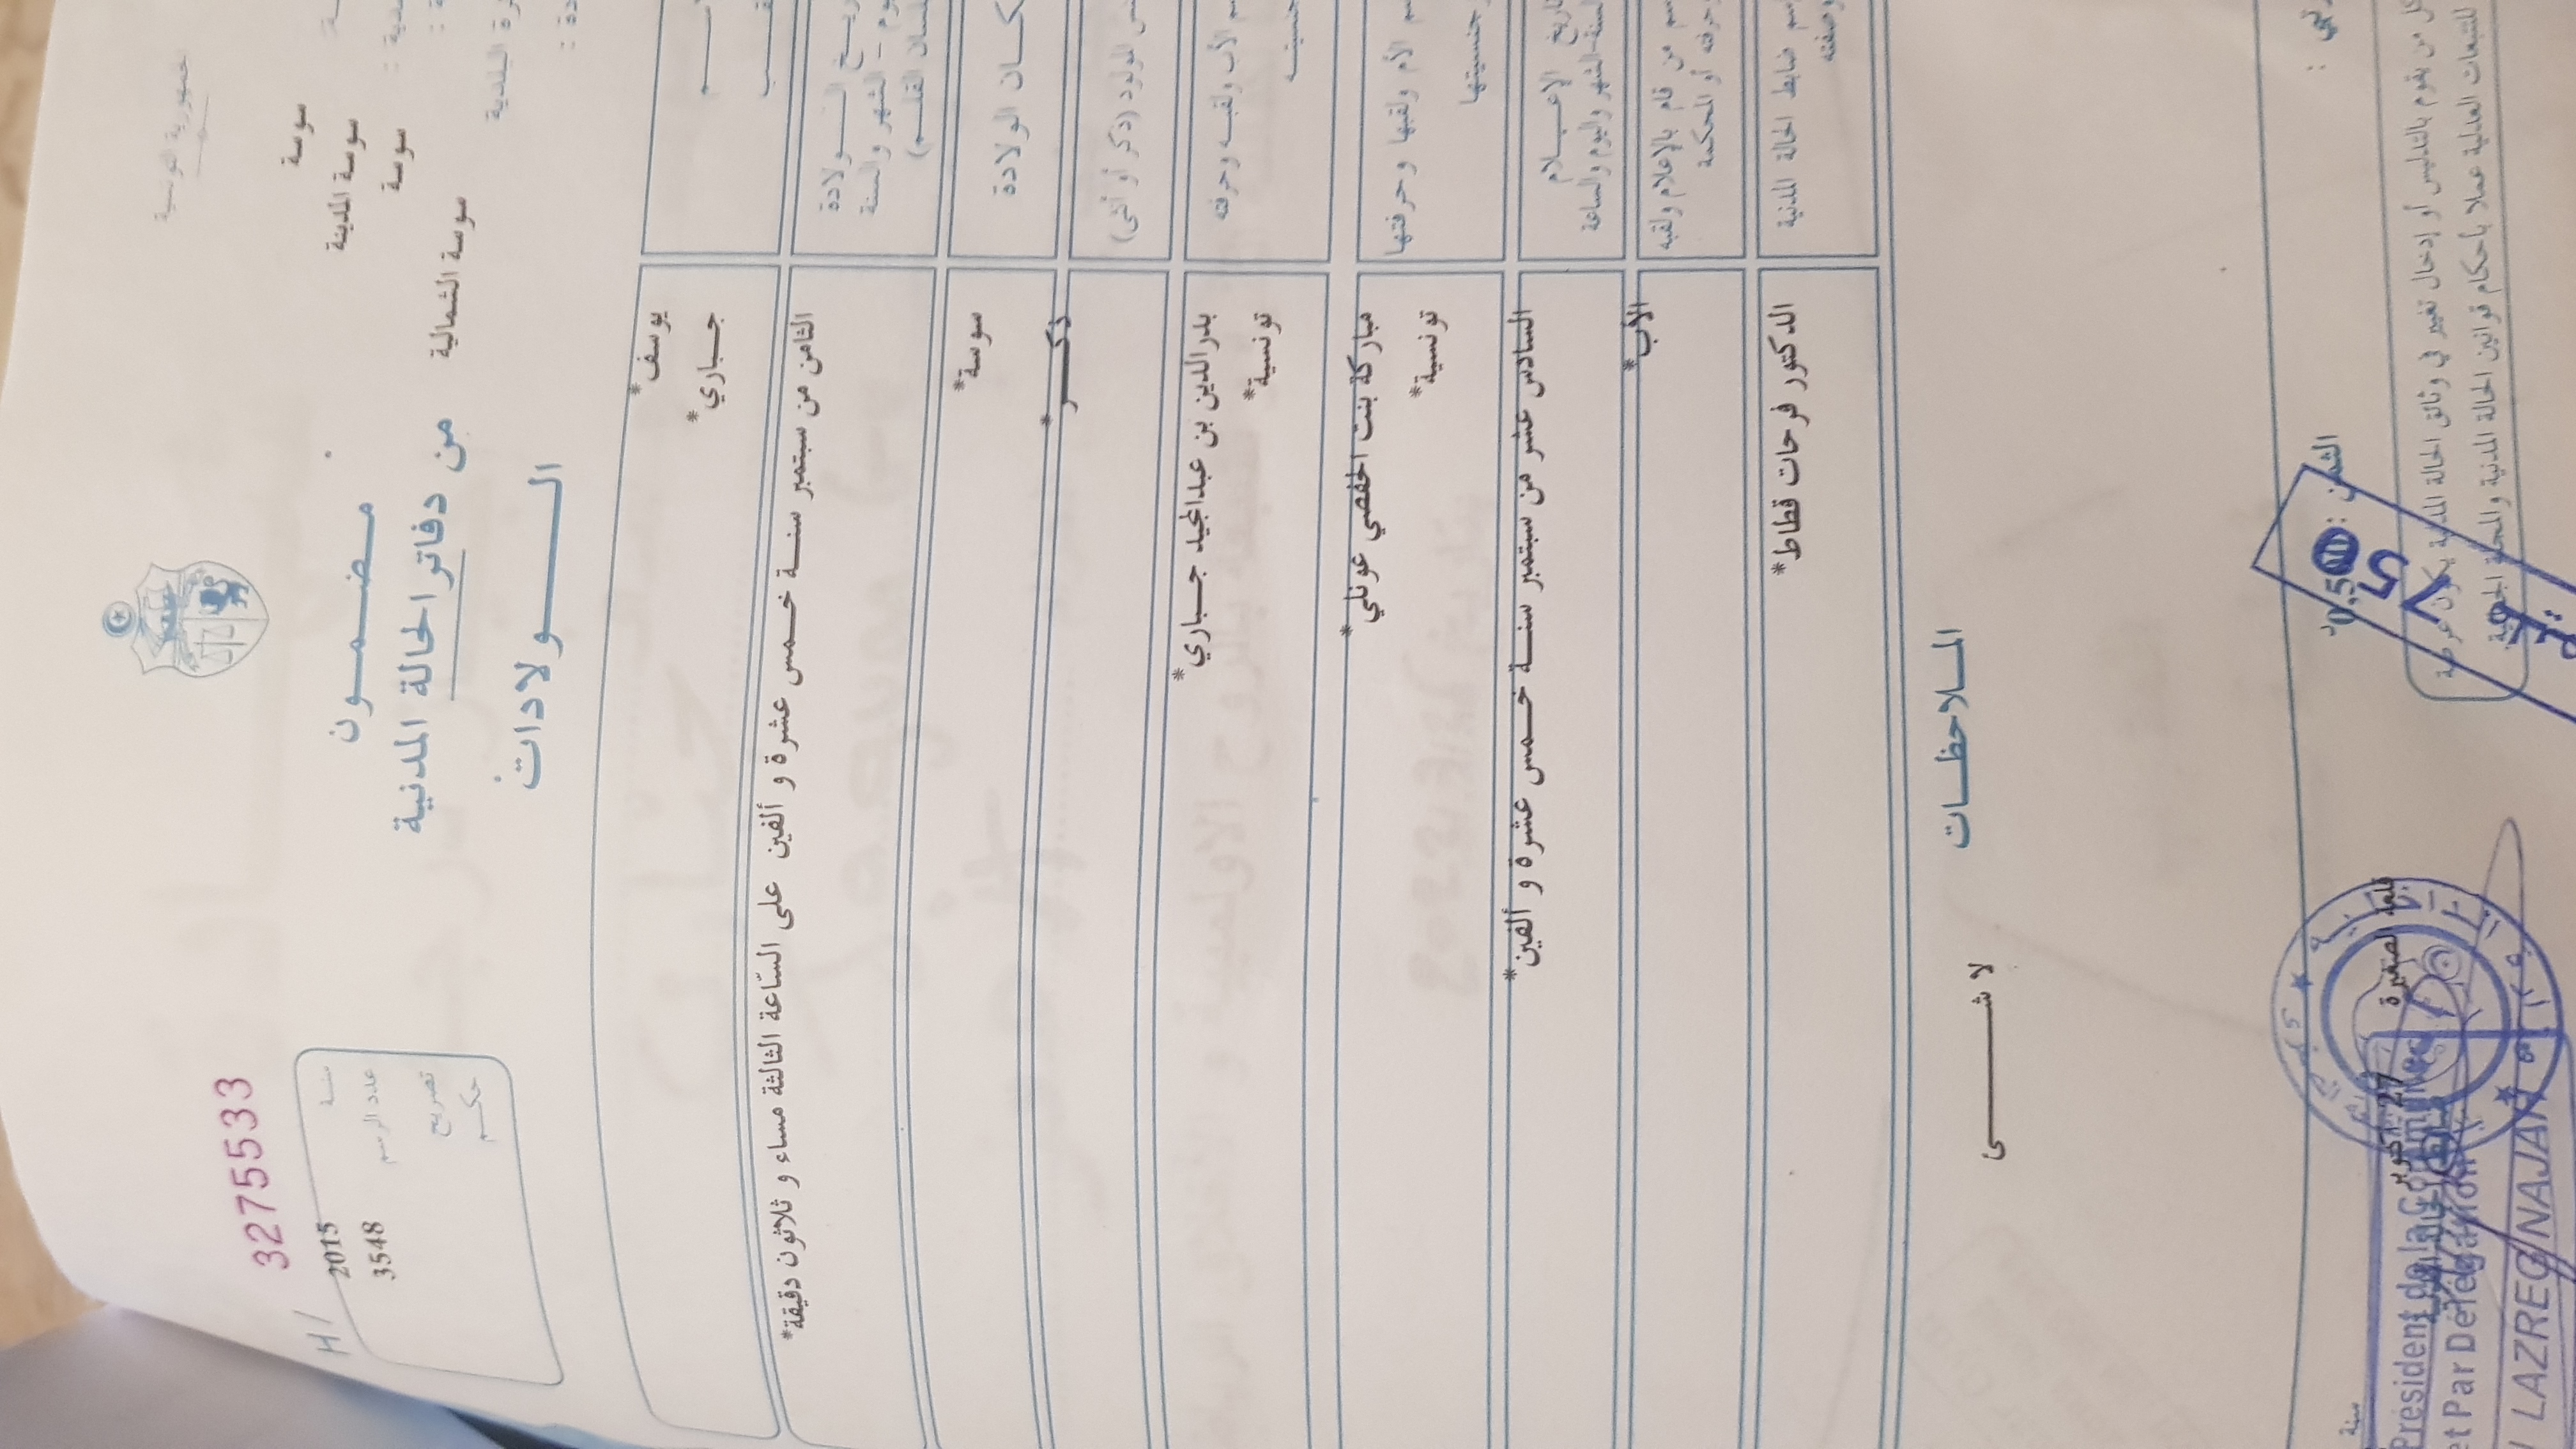 الجمهورية التونسية
سوسة
سوسة المدينة
سوسة
سوسة الشمالية
3275533
H/
سنة 2015
عدد الرسم 3548
تصريح
حكم
مضمون
من دفاتر الحالة المدنية
الولادات
*يوسف
*جباري
الثامن من سبتمبر سنة خمس عشرة و ألفين على السّاعة الثالثة مساء و ثلاثون دقيقة*
مكان الولادة
*سوسة
(ذكر أو أنثى)
*ذكر
الأب ولقبه وحرفته
بدرالدين بن عبدالمجيد جباري*
تونسية*
الأم ولقبها وحرفتها
جنسيتها
مباركة بنت الحفصي عونلي*
تونسية*
تاريخ الإعلام
السنة-الشهر واليوم والساعة
السادس عشر من سبتمبر سنة خمس عشرة و ألفين*
من قام بالإعلام ولقبه
وحرفته أو المحكمة
الأب*
ضابط الحالة المدنية
وصفته
الدكتور فرحات قطاط*
الملاحظات
لا شى
الثمن :
كل من يقوم بالتدليس أو إدخال تغيير في وثائق الحالة المدنية يكون عرضة
للتبعات العدلية عملا بأحكام قوانين الحالة المدنية والمجلة
القلعة الصغيرة
27 أكتوبر
سنة
Président de la Commune
et Par Délégation
LAZREG NAJAH